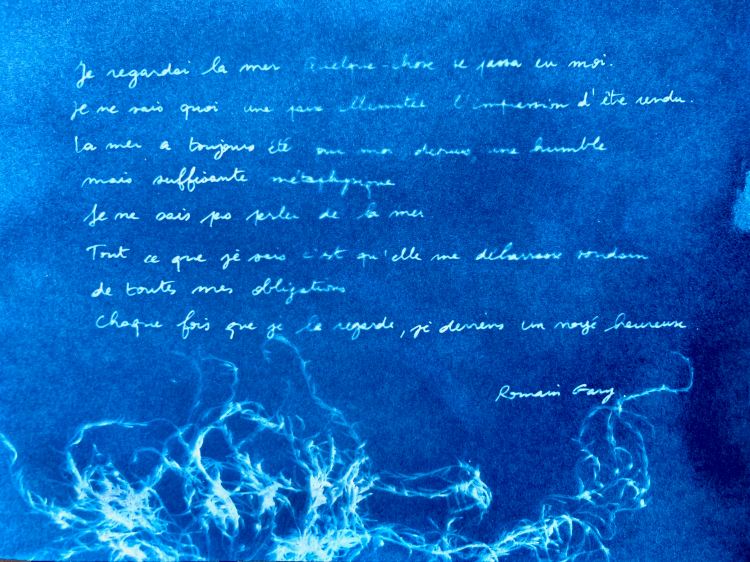 Je regardai la mer Quelque-chose se passa en moi.
Je ne sais quoi une paix illimitée l'impression d'être rendu.
La mer a toujours été pour moi depuis une humble
mais suffisante métaphysique
Je ne sais pas parler de la mer
Tout ce que je sais c'est qu'elle me débarrasse soudain
de toutes mes obligations
Chaque fois que je la regarde, je deviens un noyé heureux
Romain Gary.